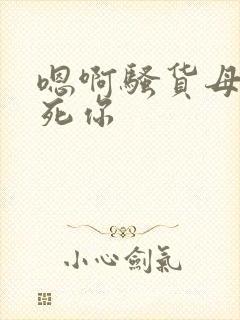 嗯啊骚货母
死你
小心劍氣